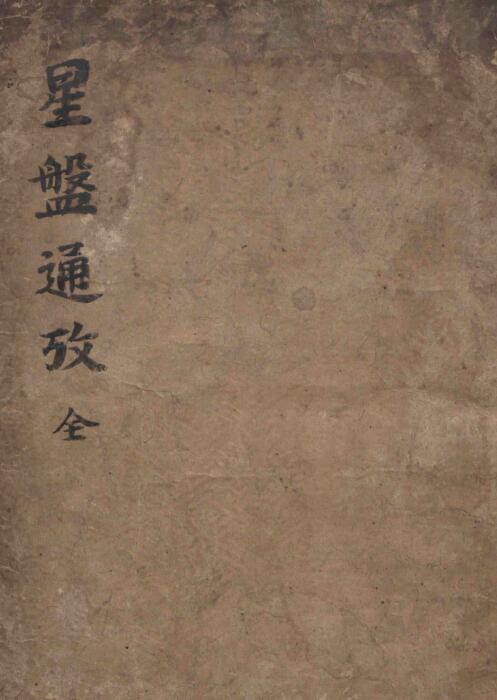 星盤通攷全